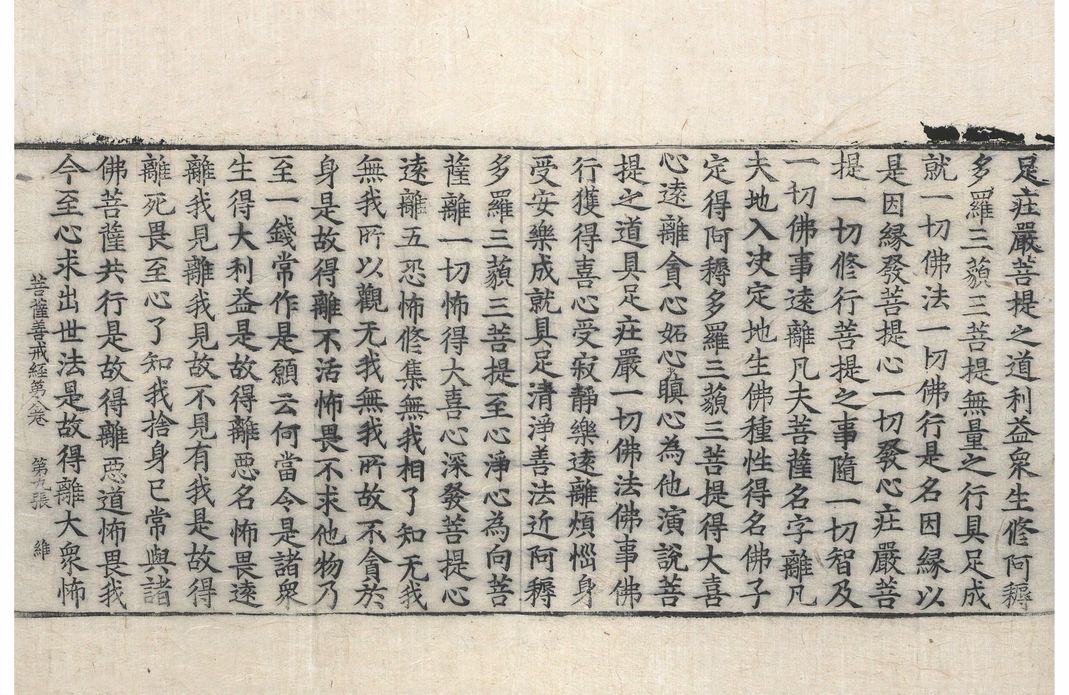 足莊嚴菩提之道利益衆生修阿耨
多羅三藐三菩提無量之行具足成
就一切佛法一切佛行是名因緣以
是因緣發菩提心一切發心莊嚴菩
提一切修行菩提之事隨一切智及
一切佛事遠離凡夫菩薩名字離凡
夫地入决定地生佛種性得名佛子
定得阿耨多羅三藐三菩提得大喜
心遠離貪心妬心瞋心為他演說菩
提之道具足莊嚴一切佛法佛事佛
行獲得喜心受寂靜樂遠離煩惱身
受安樂成就具足清淨善法近阿耨
多羅三藐三菩提至心淨心為向菩
薩離一切怖得大喜心深發菩提心
遠離五恐怖修集無我相了知无我
無我所以觀无我無我所故不貪於
身是故得離不活怖畏不求他物乃
至一錢常作是願云何當令是諸衆
生得大利益是故得離惡名怖畏遠
離我見離我見故不見有我是故得
離死畏至心了知我捨身已常與諸
佛菩薩共行是故得離惡道怖畏我
今至心求出世法是故得離大衆怖
菩薩善戒經第八卷 第九張 維